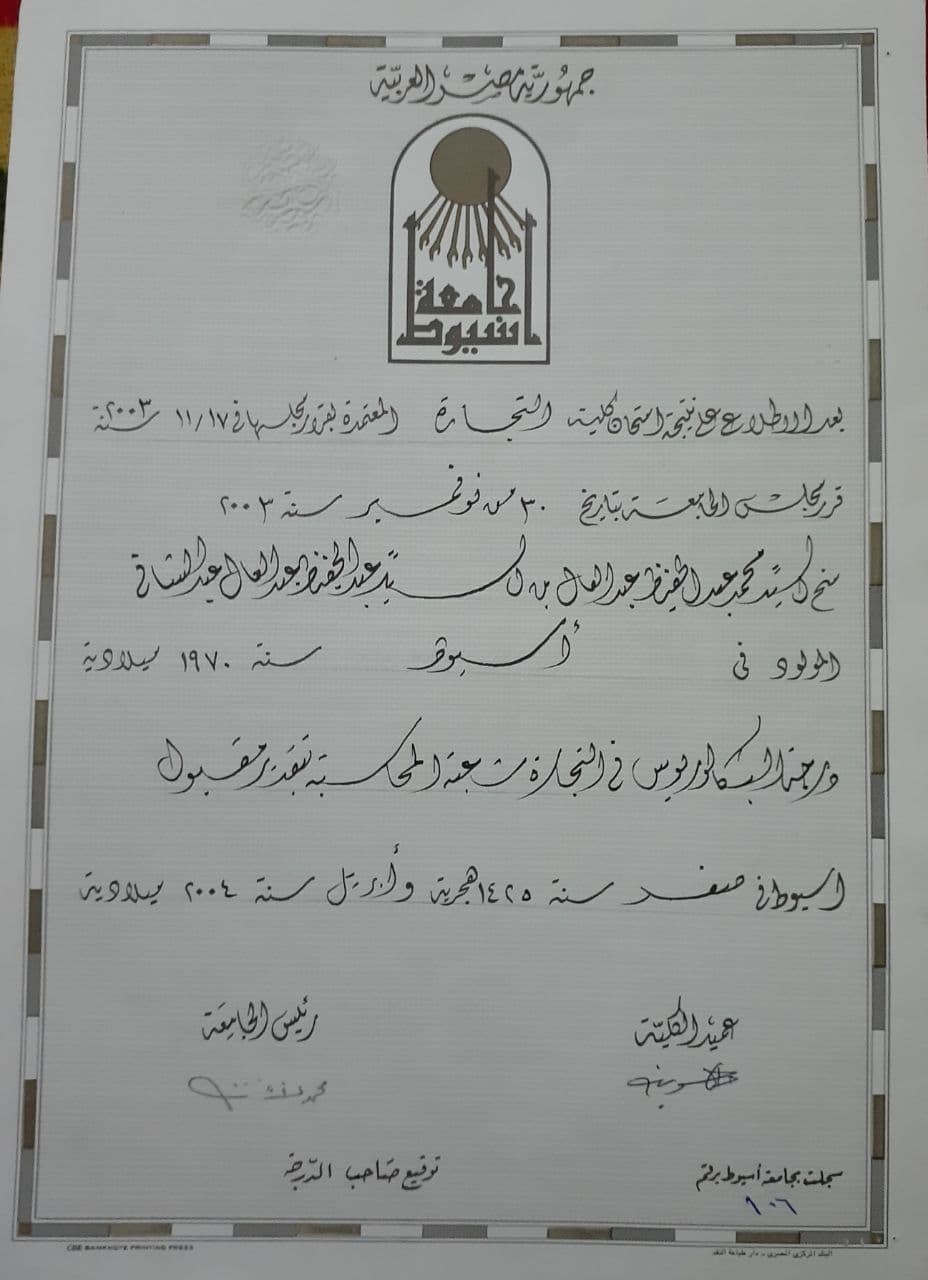 جمهورية مصر العربية
جامعة
اسيوط
بعد الاطلاع على نتيجة امتحان كلية التجارة المعتمدة بقرار مجلسها في ١١/١٧ سنة ٢٠٠٣
قرر مجلس الجامعة بتاريخ ٣٠ من نوفمبر سنة ٢٠٠٣
منح السيد محمد عبد الحفيظ عبد العال بن السيد عبد الحفيظ عبد العال عبد الشافى
المولود فى أسيوط سنة ١٩٧٠ ميلادية
درجة البكالوريوس في التجارة شعبة المحاسبة بتقدير مقبول
اسيوط في صفر سنة ١٤٢٥ هجرية وأبريل سنة ٢٠٠٤ ميلادية
عميد الكلية رئيس الجامعة
سجلت بجامعة أسيوط برقم توقيع صاحب الدرجة
١٠٦
البنك المركزى المصرى - دار طباعة النقد CBE BANKNOTE PRINTING PRESS